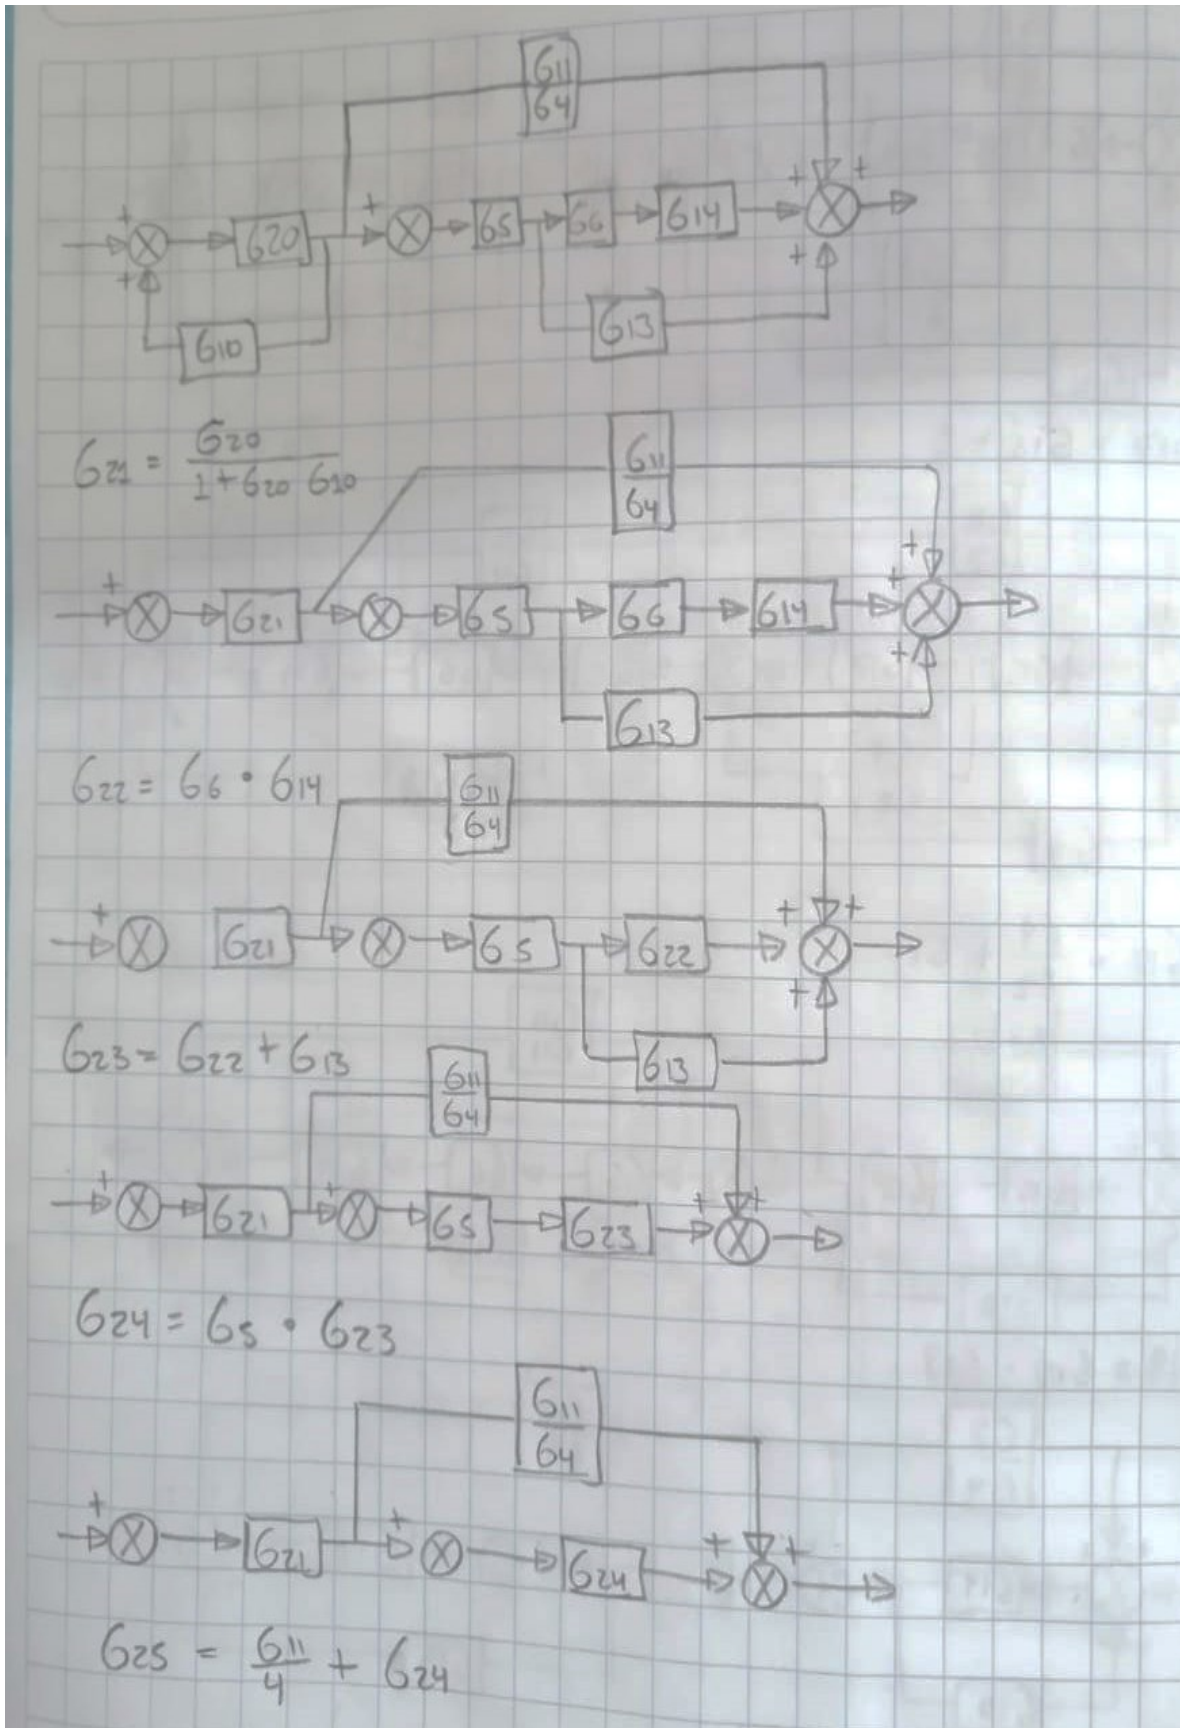 G11
G4
+ + +
+ G20 + G5 G6 G14
+ +
G10 G13
G21 = G20
1 + G20 G10
G11
G4
+
+ +
G21 G5 G6 G14
+
G13
G22 = G6 · G14
G11
G4
+ + +
G21 G5 G22
+
G23 = G22 + G13
G13
G11
G4
+ + + +
G21 G5 G23
G24 = G5 · G23
G11
G4
+ + + +
G21 G24
G25 = G11 + G24
4